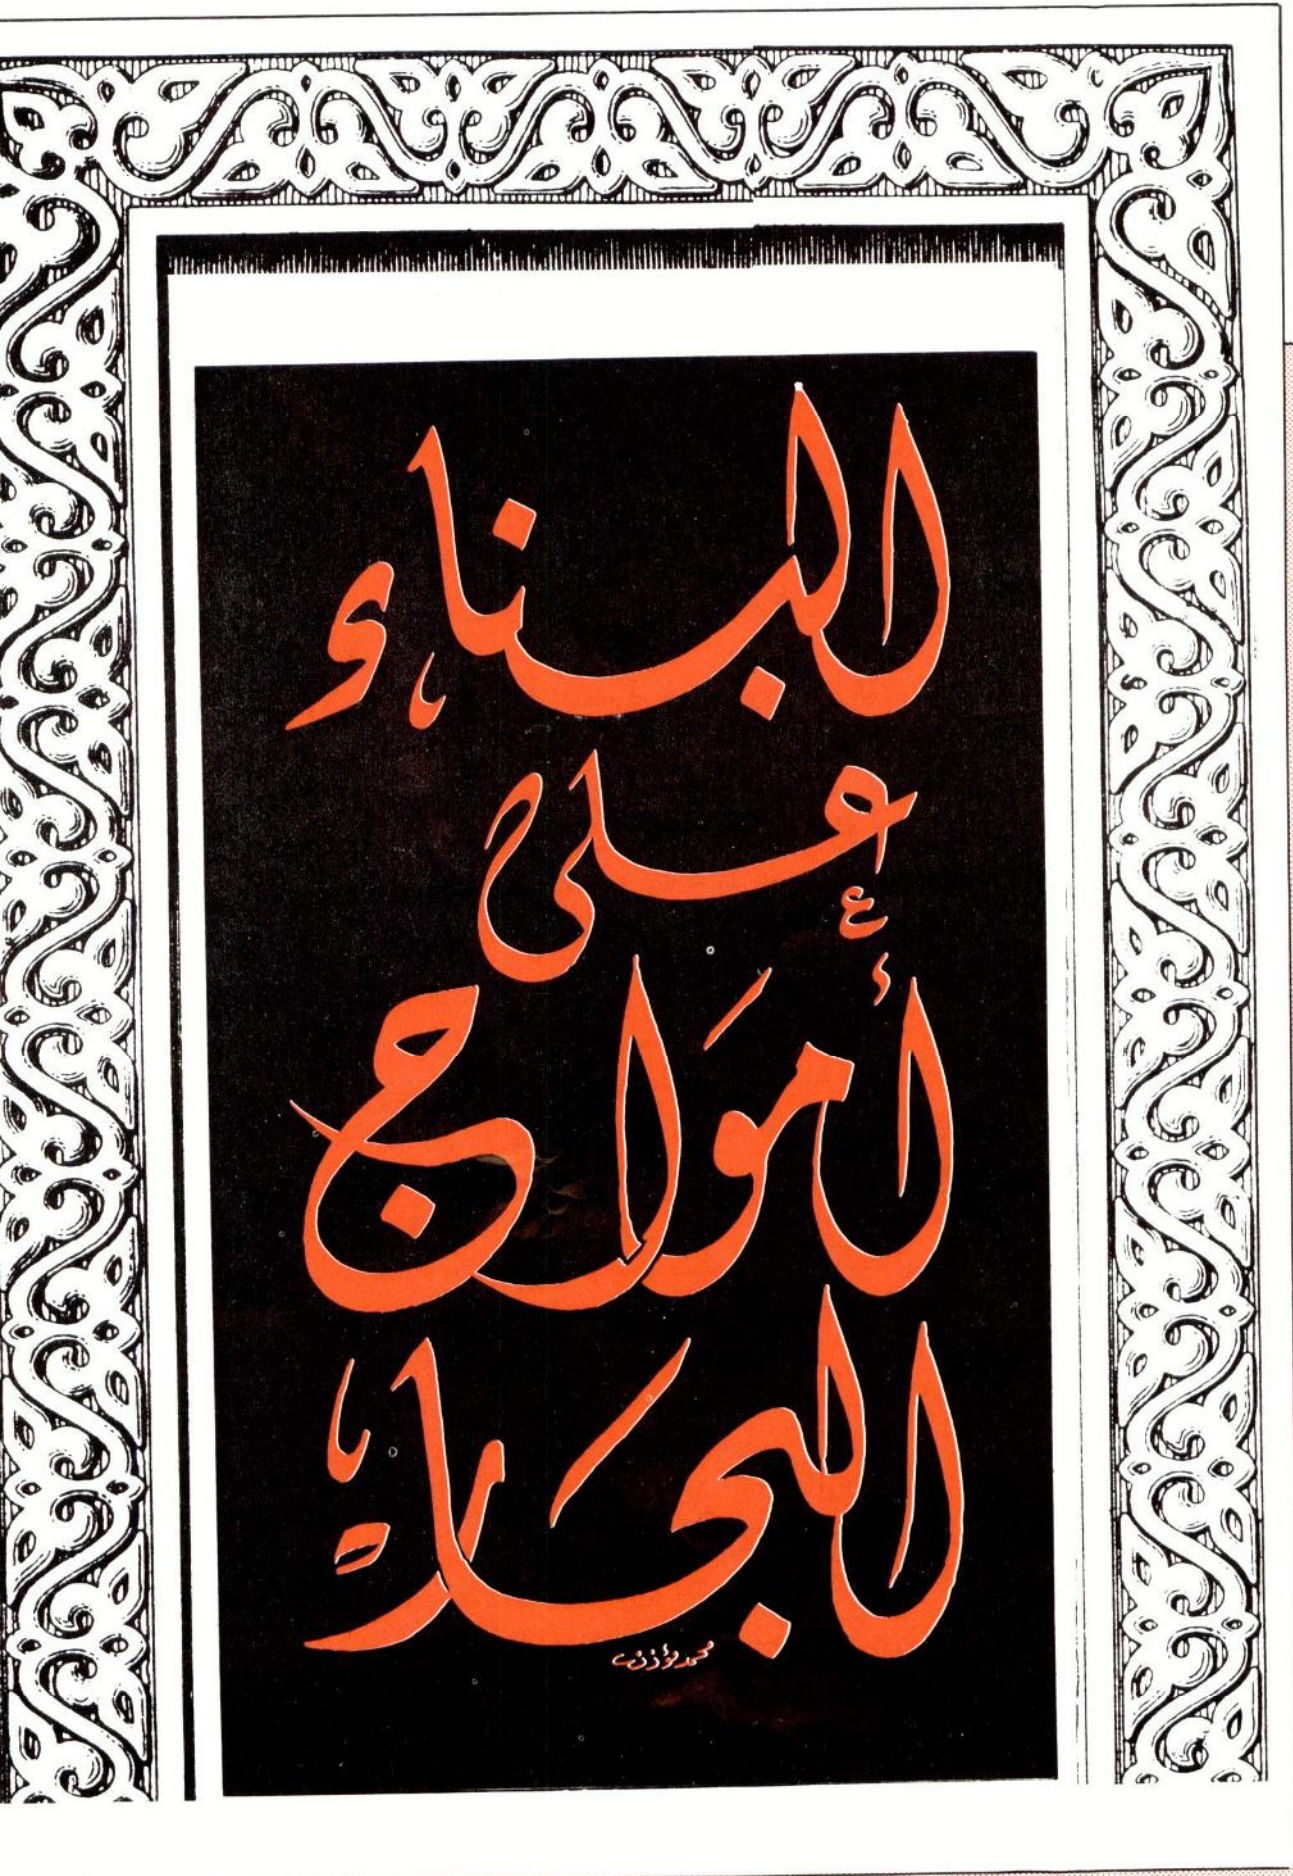 البناء
على
أموَاج
البحَار
محمد مؤذن